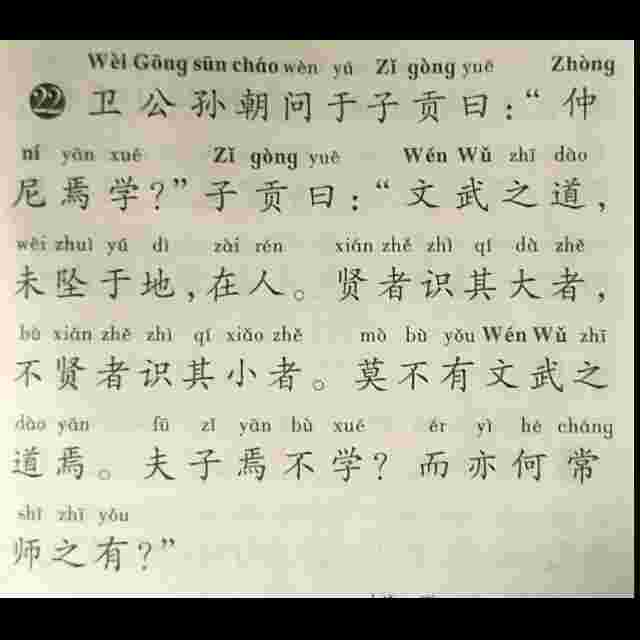 Wèi Gōng sūn cháo wèn yú Zǐ gòng yuē Zhòng
22 卫公孙朝问于子贡曰：“仲
ní yān xué Zǐ gòng yuē Wén Wǔ zhī dào
尼焉学？”子贡曰：“文武之道，
wèi zhuì yú dì zài rén xián zhě zhì qí dà zhě
未坠于地，在人。贤者识其大者，
bù xián zhě zhì qí xiǎo zhě mò bù yǒu Wén Wǔ zhī
不贤者识其小者。莫不有文武之
dào yān fū zǐ yān bù xué ér yì hé cháng
道焉。夫子焉不学？而亦何常
shī zhī yǒu
师之有？”